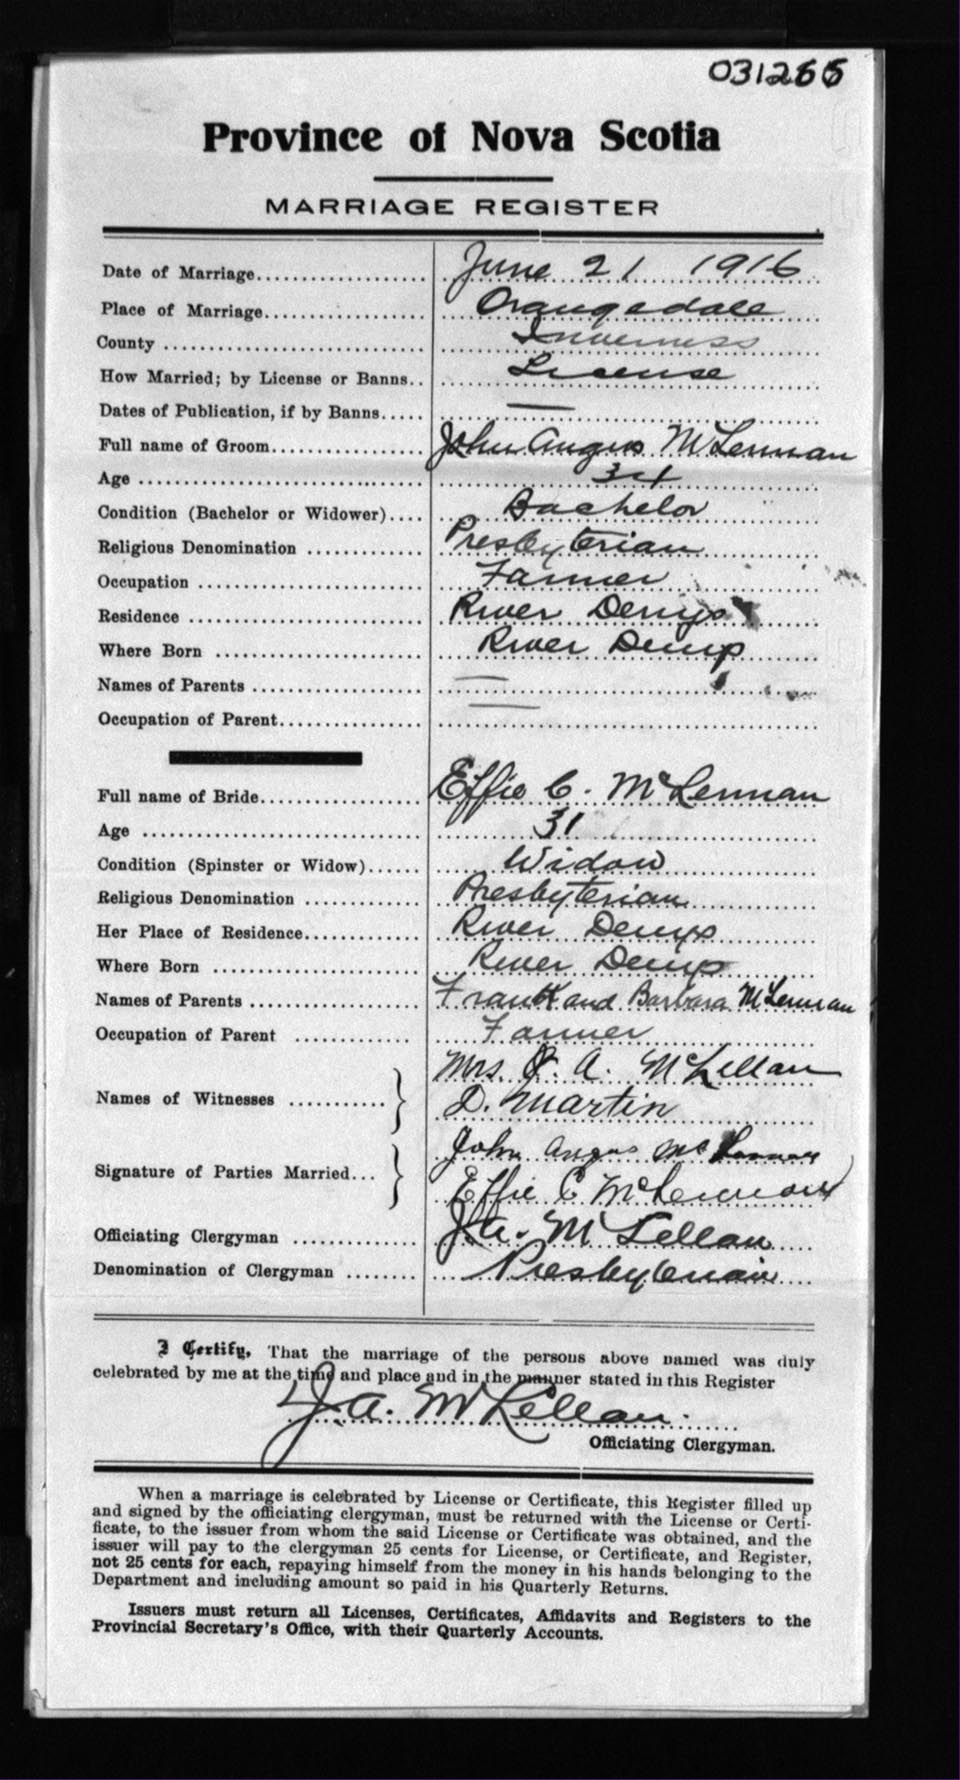 031266
Province of Nova Scotia
MARRIAGE REGISTER
Date of Marriage.................... June 21 1916
Place of Marriage.................. Orangedale
County ............................ Inverness
How Married; by License or Banns.. License
Dates of Publication, if by Banns..... —
Full name of Groom.................. John Angus McLennan
Age ............................... 34
Condition (Bachelor or Widower).... Bachelor
Religious Denomination ............ Presbyterian
Occupation ........................ Farmer
Residence ......................... River Denys
Where Born ...................... River Denys
Names of Parents .................. —
Occupation of Parent................ —
Full name of Bride.................. Effie C. McLennan
Age ............................... 31
Condition (Spinster or Widow)...... Widow
Religious Denomination ............ Presbyterian
Her Place of Residence.............. River Denys
Where Born ...................... River Denys
Names of Parents .................. Frank and Barbara McLennan
Occupation of Parent ............. Farmer
Mrs J. A. McLellan
Names of Witnesses ........... } D. Martin
John Angus McLennan
Signature of Parties Married... } Effie C McLennan
Officiating Clergyman .............. J.A. McLellan
Denomination of Clergyman ........ Presbyterian
I Certify, That the marriage of the persons above named was duly
celebrated by me at the time and place and in the manner stated in this Register
J.A. McLellan.
Officiating Clergyman.
When a marriage is celebrated by License or Certificate, this Register filled up
and signed by the officiating clergyman, must be returned with the License or Certi-
ficate, to the issuer from whom the said License or Certificate was obtained, and the
issuer will pay to the clergyman 25 cents for License, or Certificate, and Register,
not 25 cents for each, repaying himself from the money in his hands belonging to the
Department and including amount so paid in his Quarterly Returns.
Issuers must return all Licenses, Certificates, Affidavits and Registers to the
Provincial Secretary's Office, with their Quarterly Accounts.